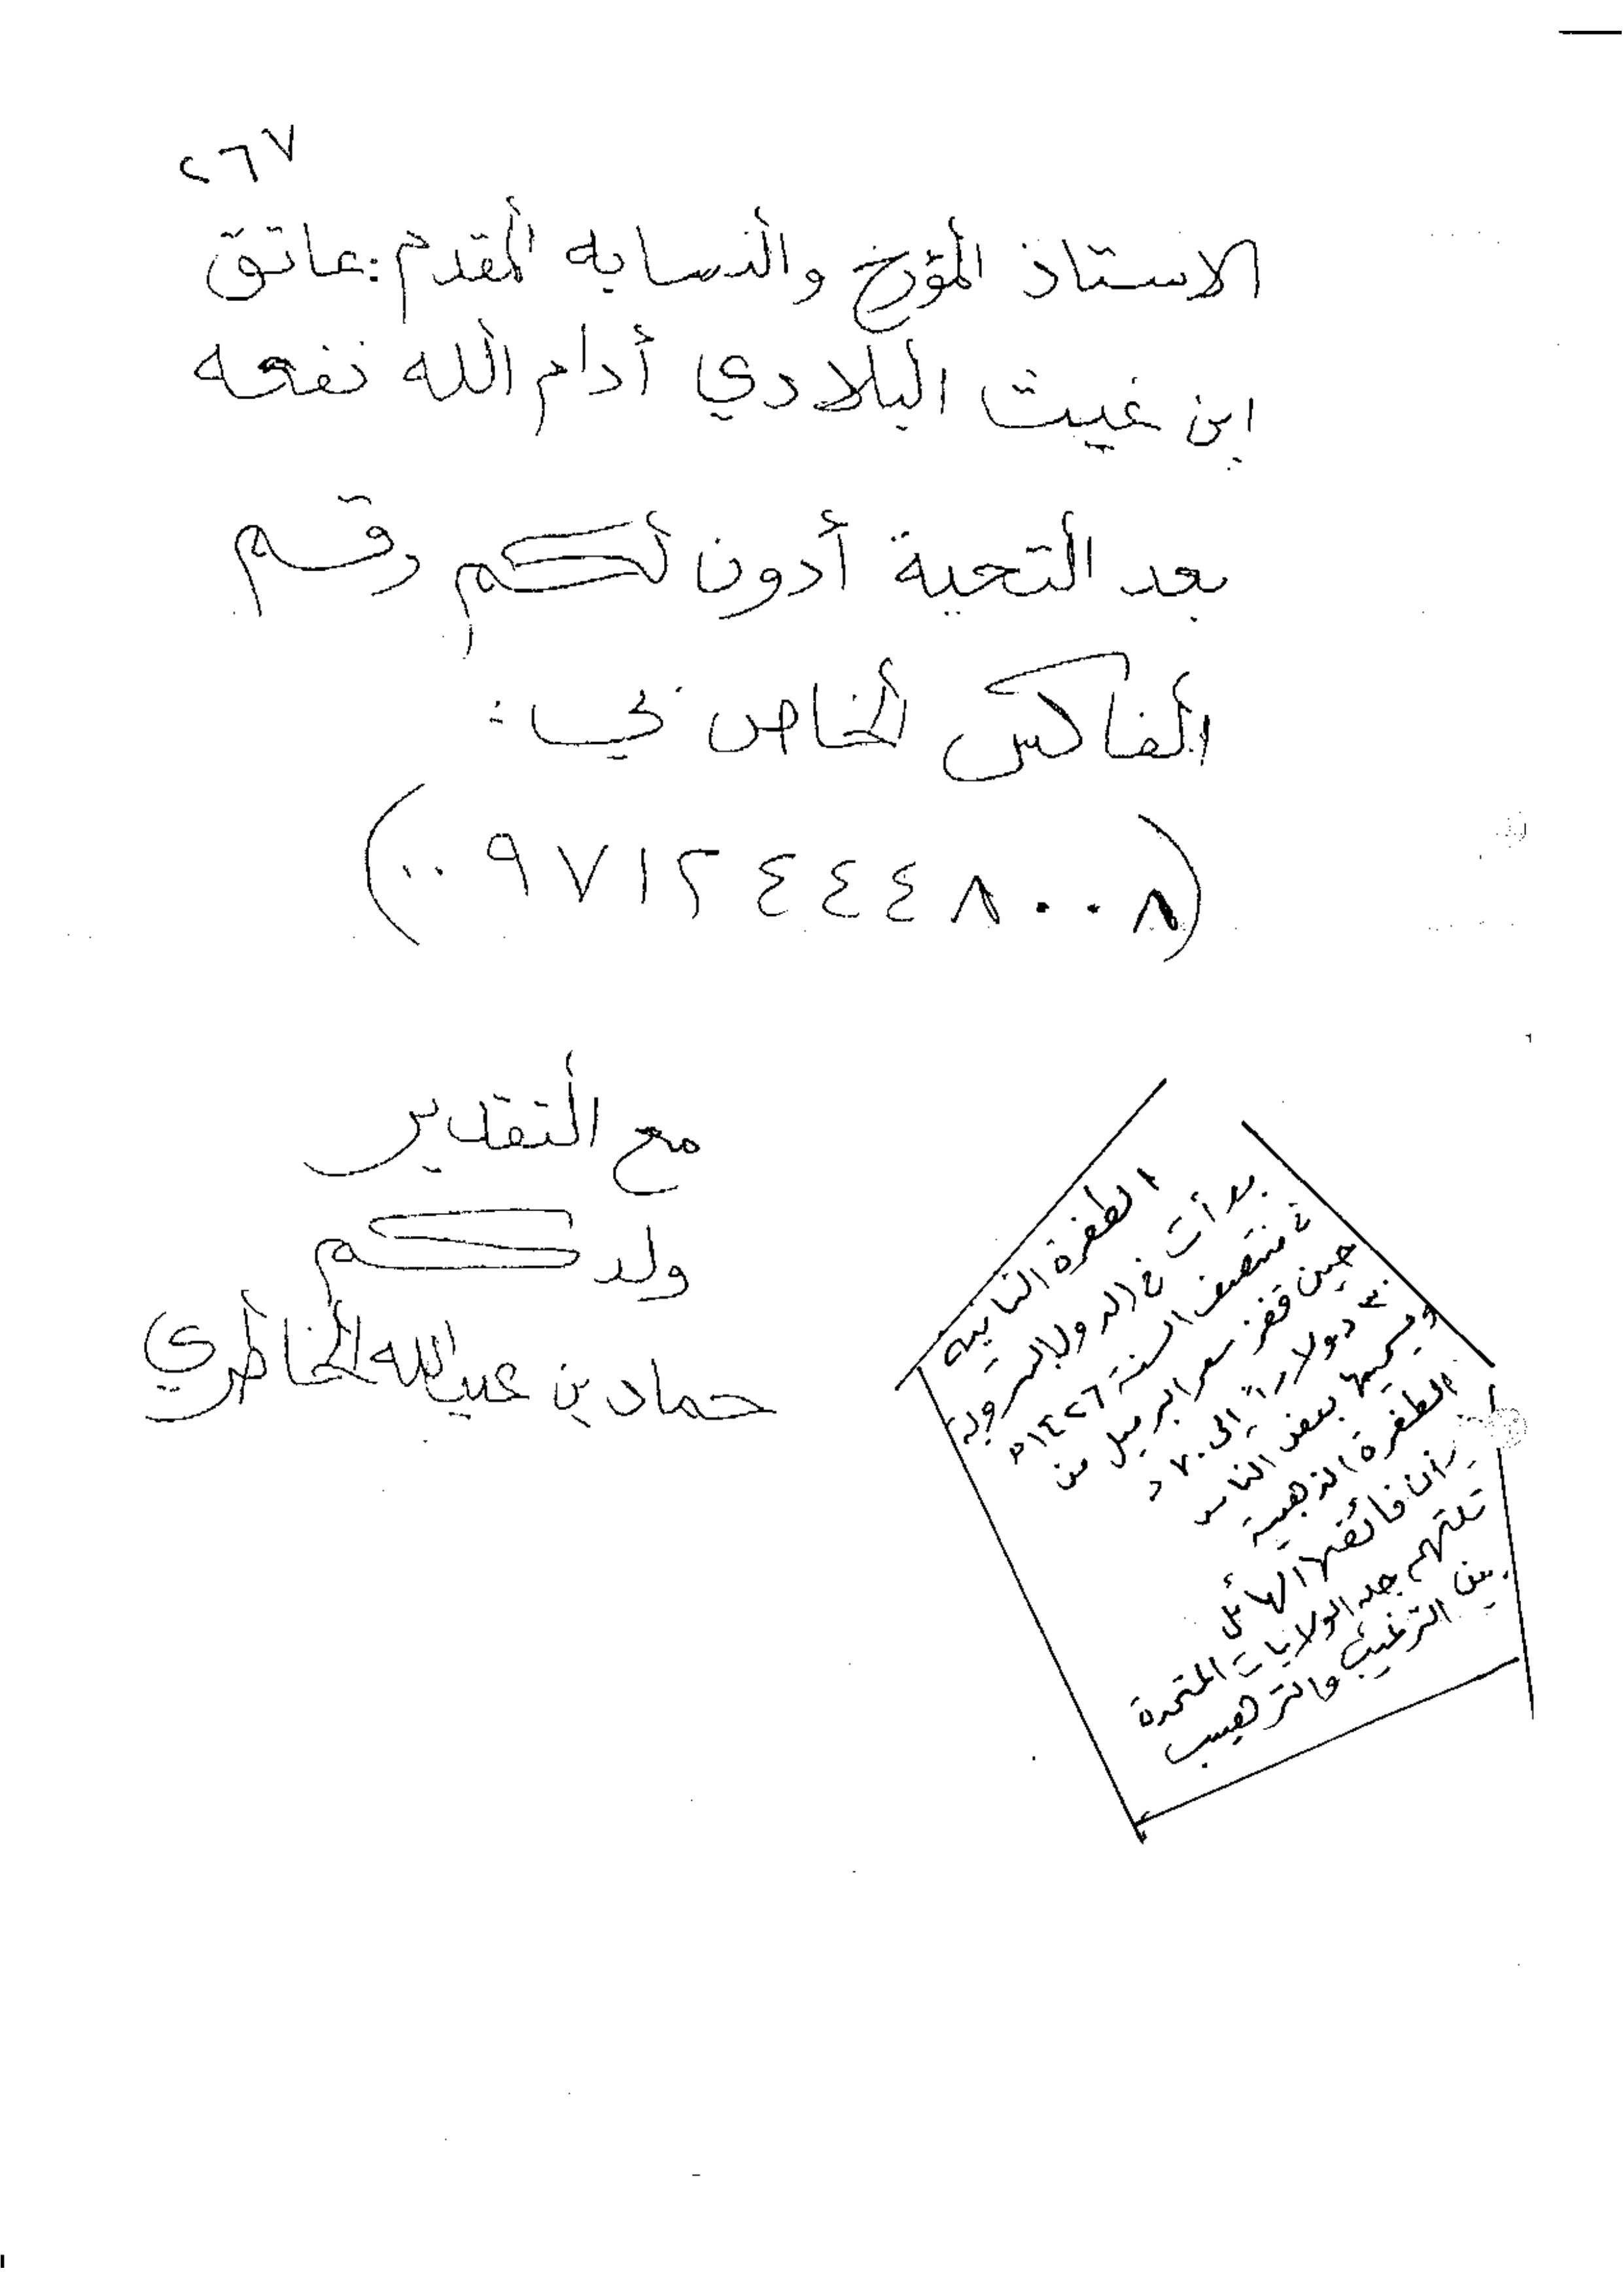 ٢٦٧
الاستاذ المؤرخ والنسابه المقدم: عاتق
ابن غيث البلادي أدام الله نفعه
بعد التحية أدون لكم رقم
الفاكس الخاص بي:
(٠٠٩٧١٢٤٤٤٨٠٠٨)
مع التقدير
ولدكم
حماد بن عبدالله الخاطري
الطفرة الثانيه
بدأت في الدول البترولية
في منتصف السنة ١٤٢٦ه
حين قفز سعر البرميل من
دولاراً إلى ٧٠ د
ويسميها بعض الناس
الطفرة الذهبية
إن فائضها الهائل
تلتهم جله الولايات المتحدة
بين الترغيب والترهيب